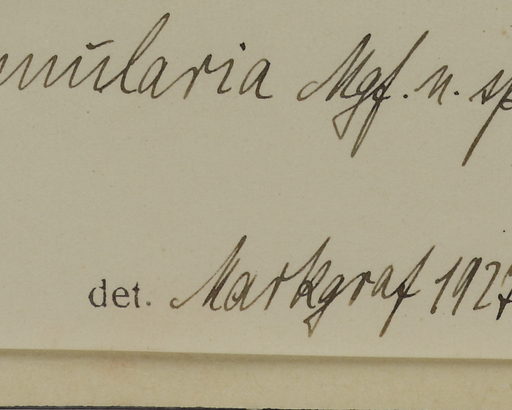 mularia Mgf. n. sp
det. Markgraf 1927